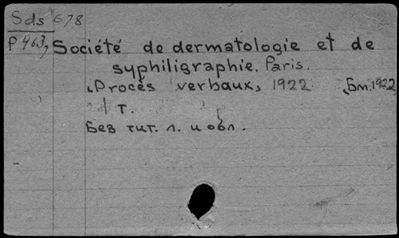 Sds 678
P463,
Société de dermatologie et de
syphiligraphie. Paris.
„Procès verbaux, 1922 Бm.1922
т.
Без тит. л. и обл.